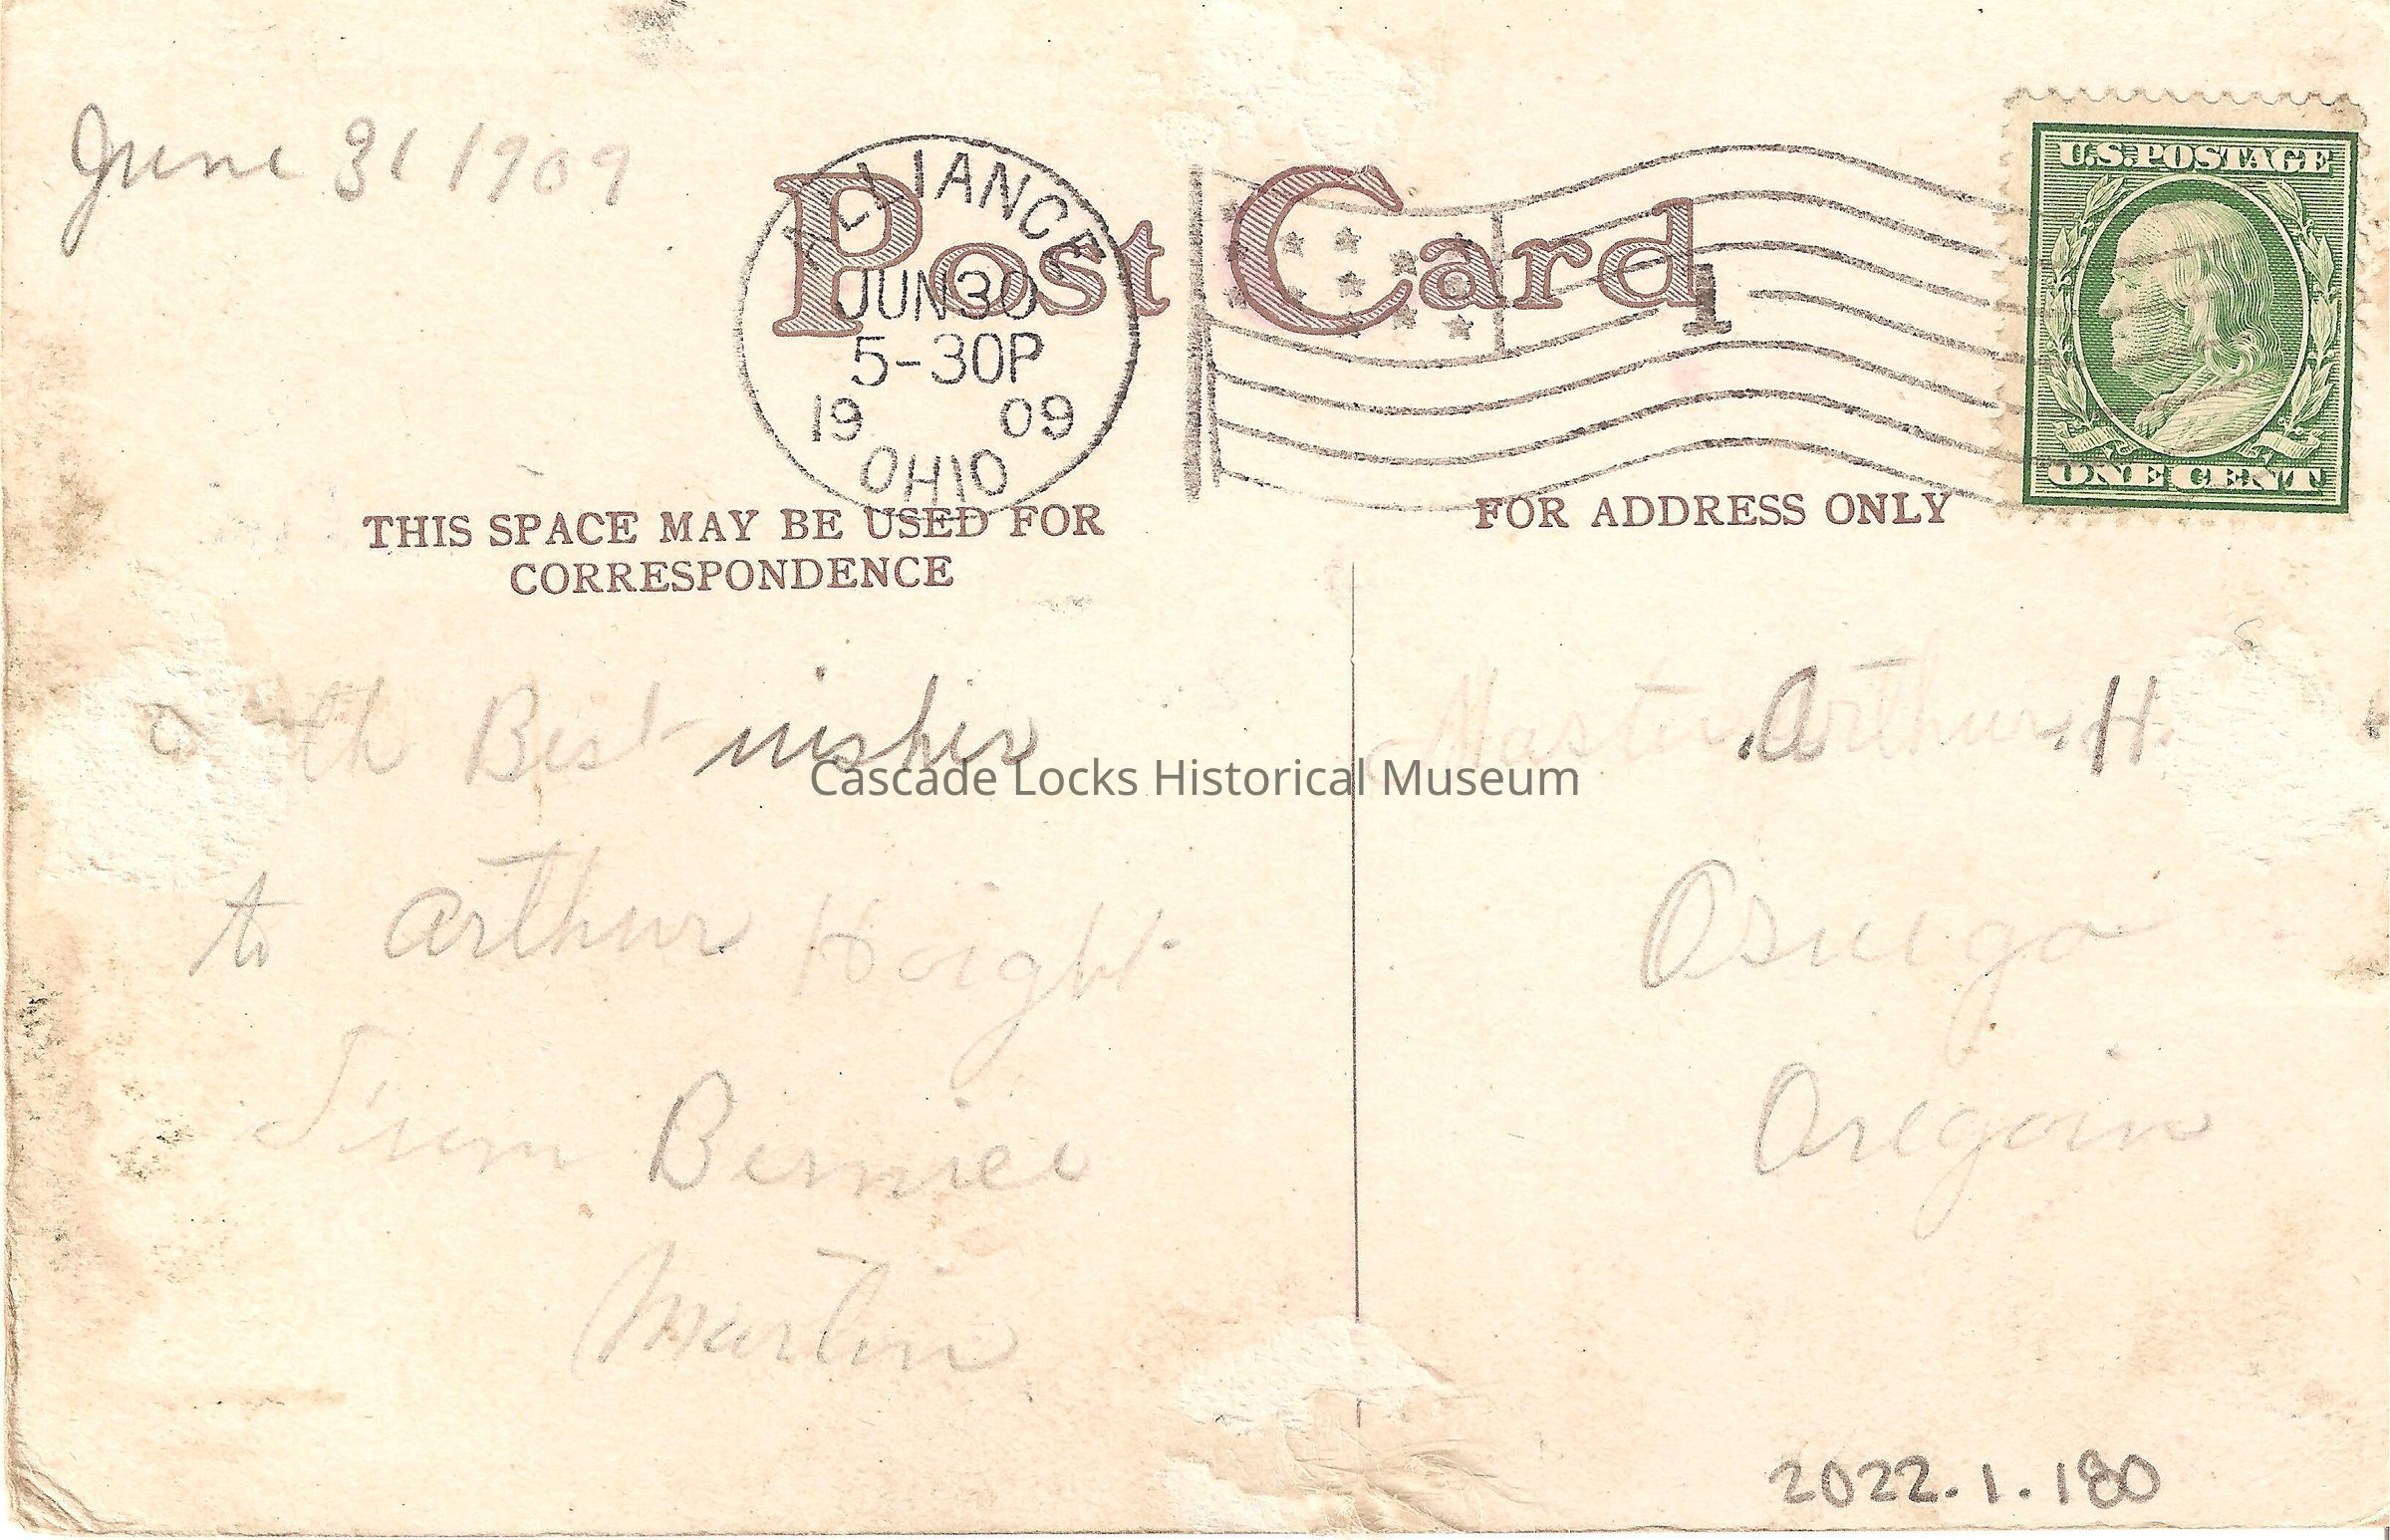 June 31 1909
Post Card
ALLIANCE
JUN 30
5-30P
19 09
OHIO
1
U.S. POSTAGE
ONE CENT
THIS SPACE MAY BE USED FOR
CORRESPONDENCE
FOR ADDRESS ONLY
th Best wishes
to Arthur Hoight
From Bernice
Martin
Master Arthur H.
Oswego
Oregoin
Cascade Locks Historical Museum
2022.1.180